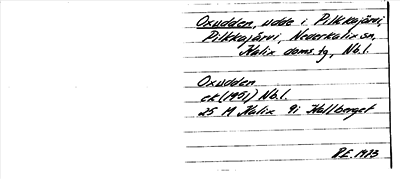 Oxudden, udde i Pilkkajärvi,
Pilkkajärvi, Nederkalix sn,
Kalix doms.tg, Nb.l.
Oxudden
ek (1951) Nb.l.
25 M Kalix 9i Kallberget
R.E. 1973